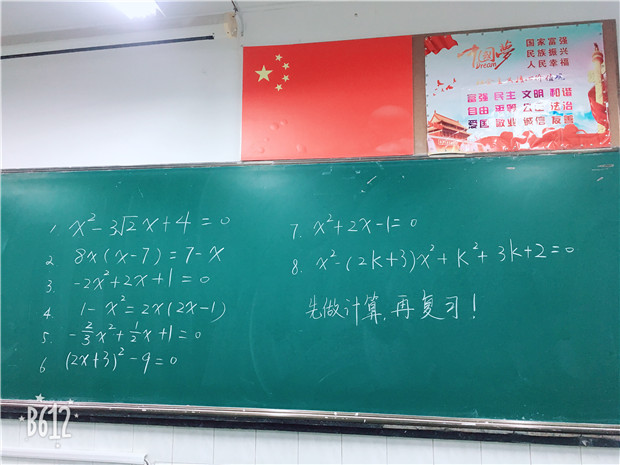 中国夢
Dream
国家富强
民族振兴
人民幸福
富强 民主 文明 和谐
自由 平等 公正 法治
爱国 敬业 诚信 友善
1. x²-3√2x+4=0
2. 8x(x-7)=7-x
3. -2x²+2x+1=0
4. 1-x²=2x(2x-1)
5. -2/3x²+1/2x+1=0
6. (2x+3)²-9=0
7. x²+2x-1=0
8. x²-(2k+3)x²+k²+3k+2=0
先做计算,再复习!
B612